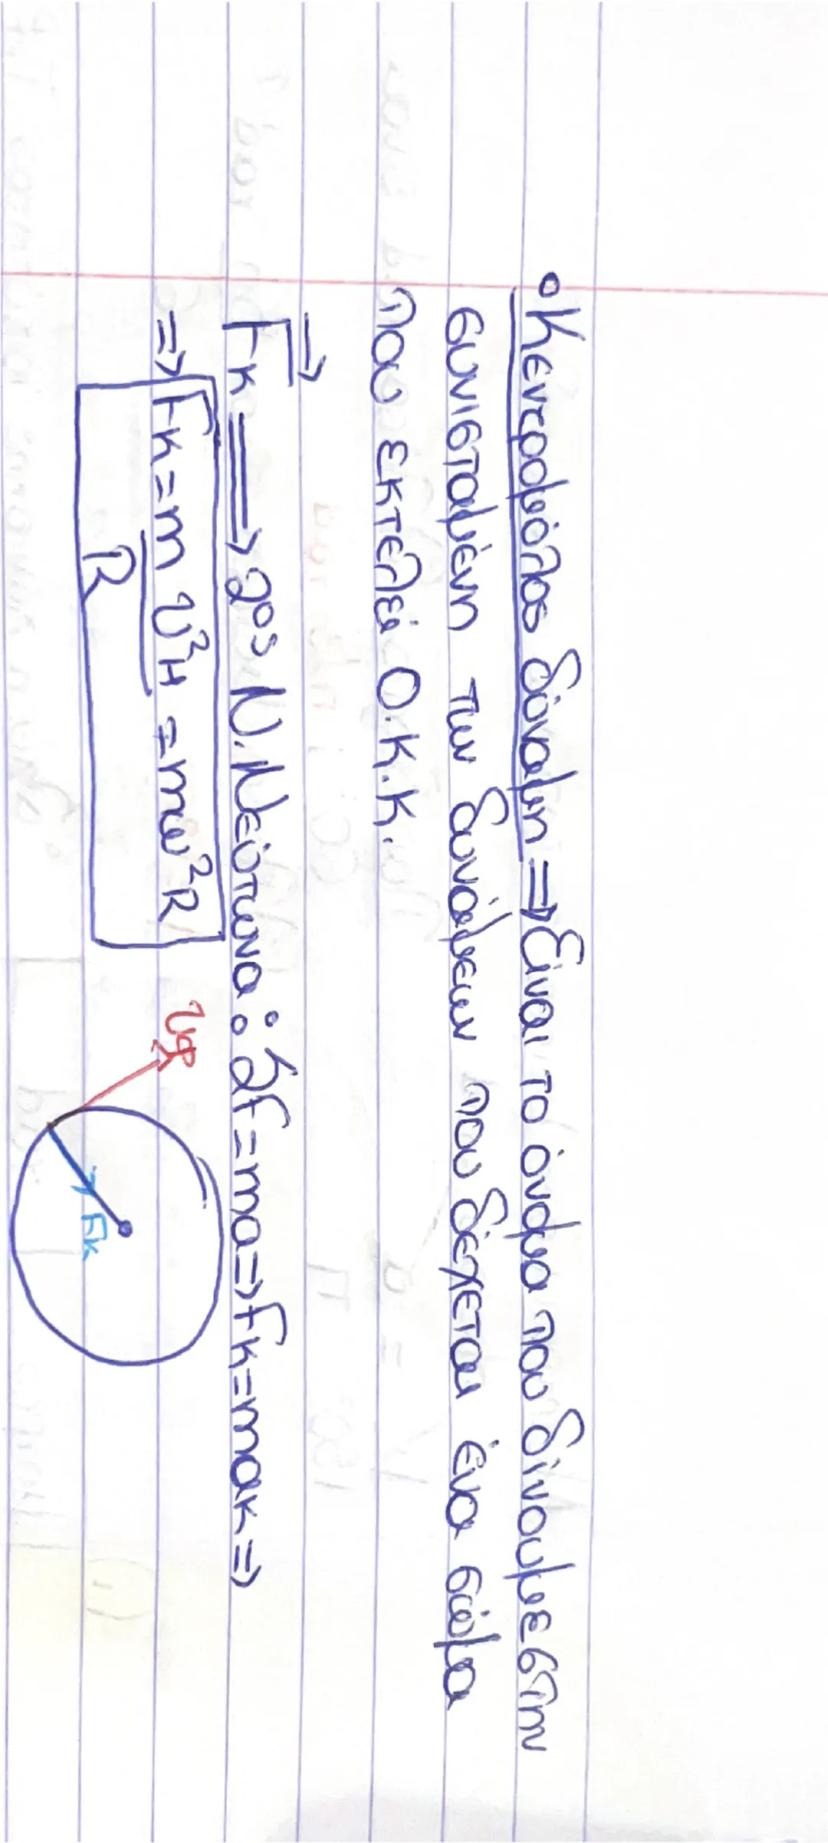 • Κεντρομόλος δύναμη => Είναι το όνομα που δίνουμε στην
συνισταμένη των δυνάμεων που δέχεται ένα σώμα
που εκτελεί Ο.Κ.Κ.
=>
Fκ => 2ος Ν. Νεύτωνα: ΣF=ma=>Fκ=maκ=>
=> Fκ=m υ²Η = mω²R
R
υγρ
Fκ